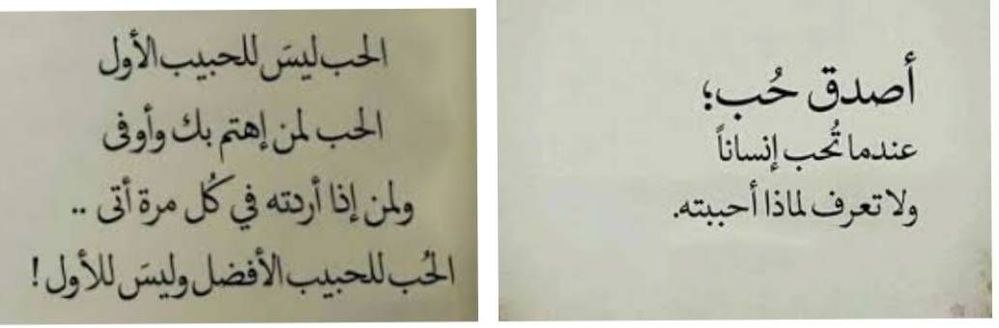 الحب ليسَ للحبيب الأول
الحب لمن إهتم بك وأوفى
ولمن إذا أردته في كُل مرة أتى ..
الحُب للحبيب الأفضل وليسَ للأول !
أصدق حُب؛
عندما تُحب إنساناً
ولا تعرف لماذا أحببته.